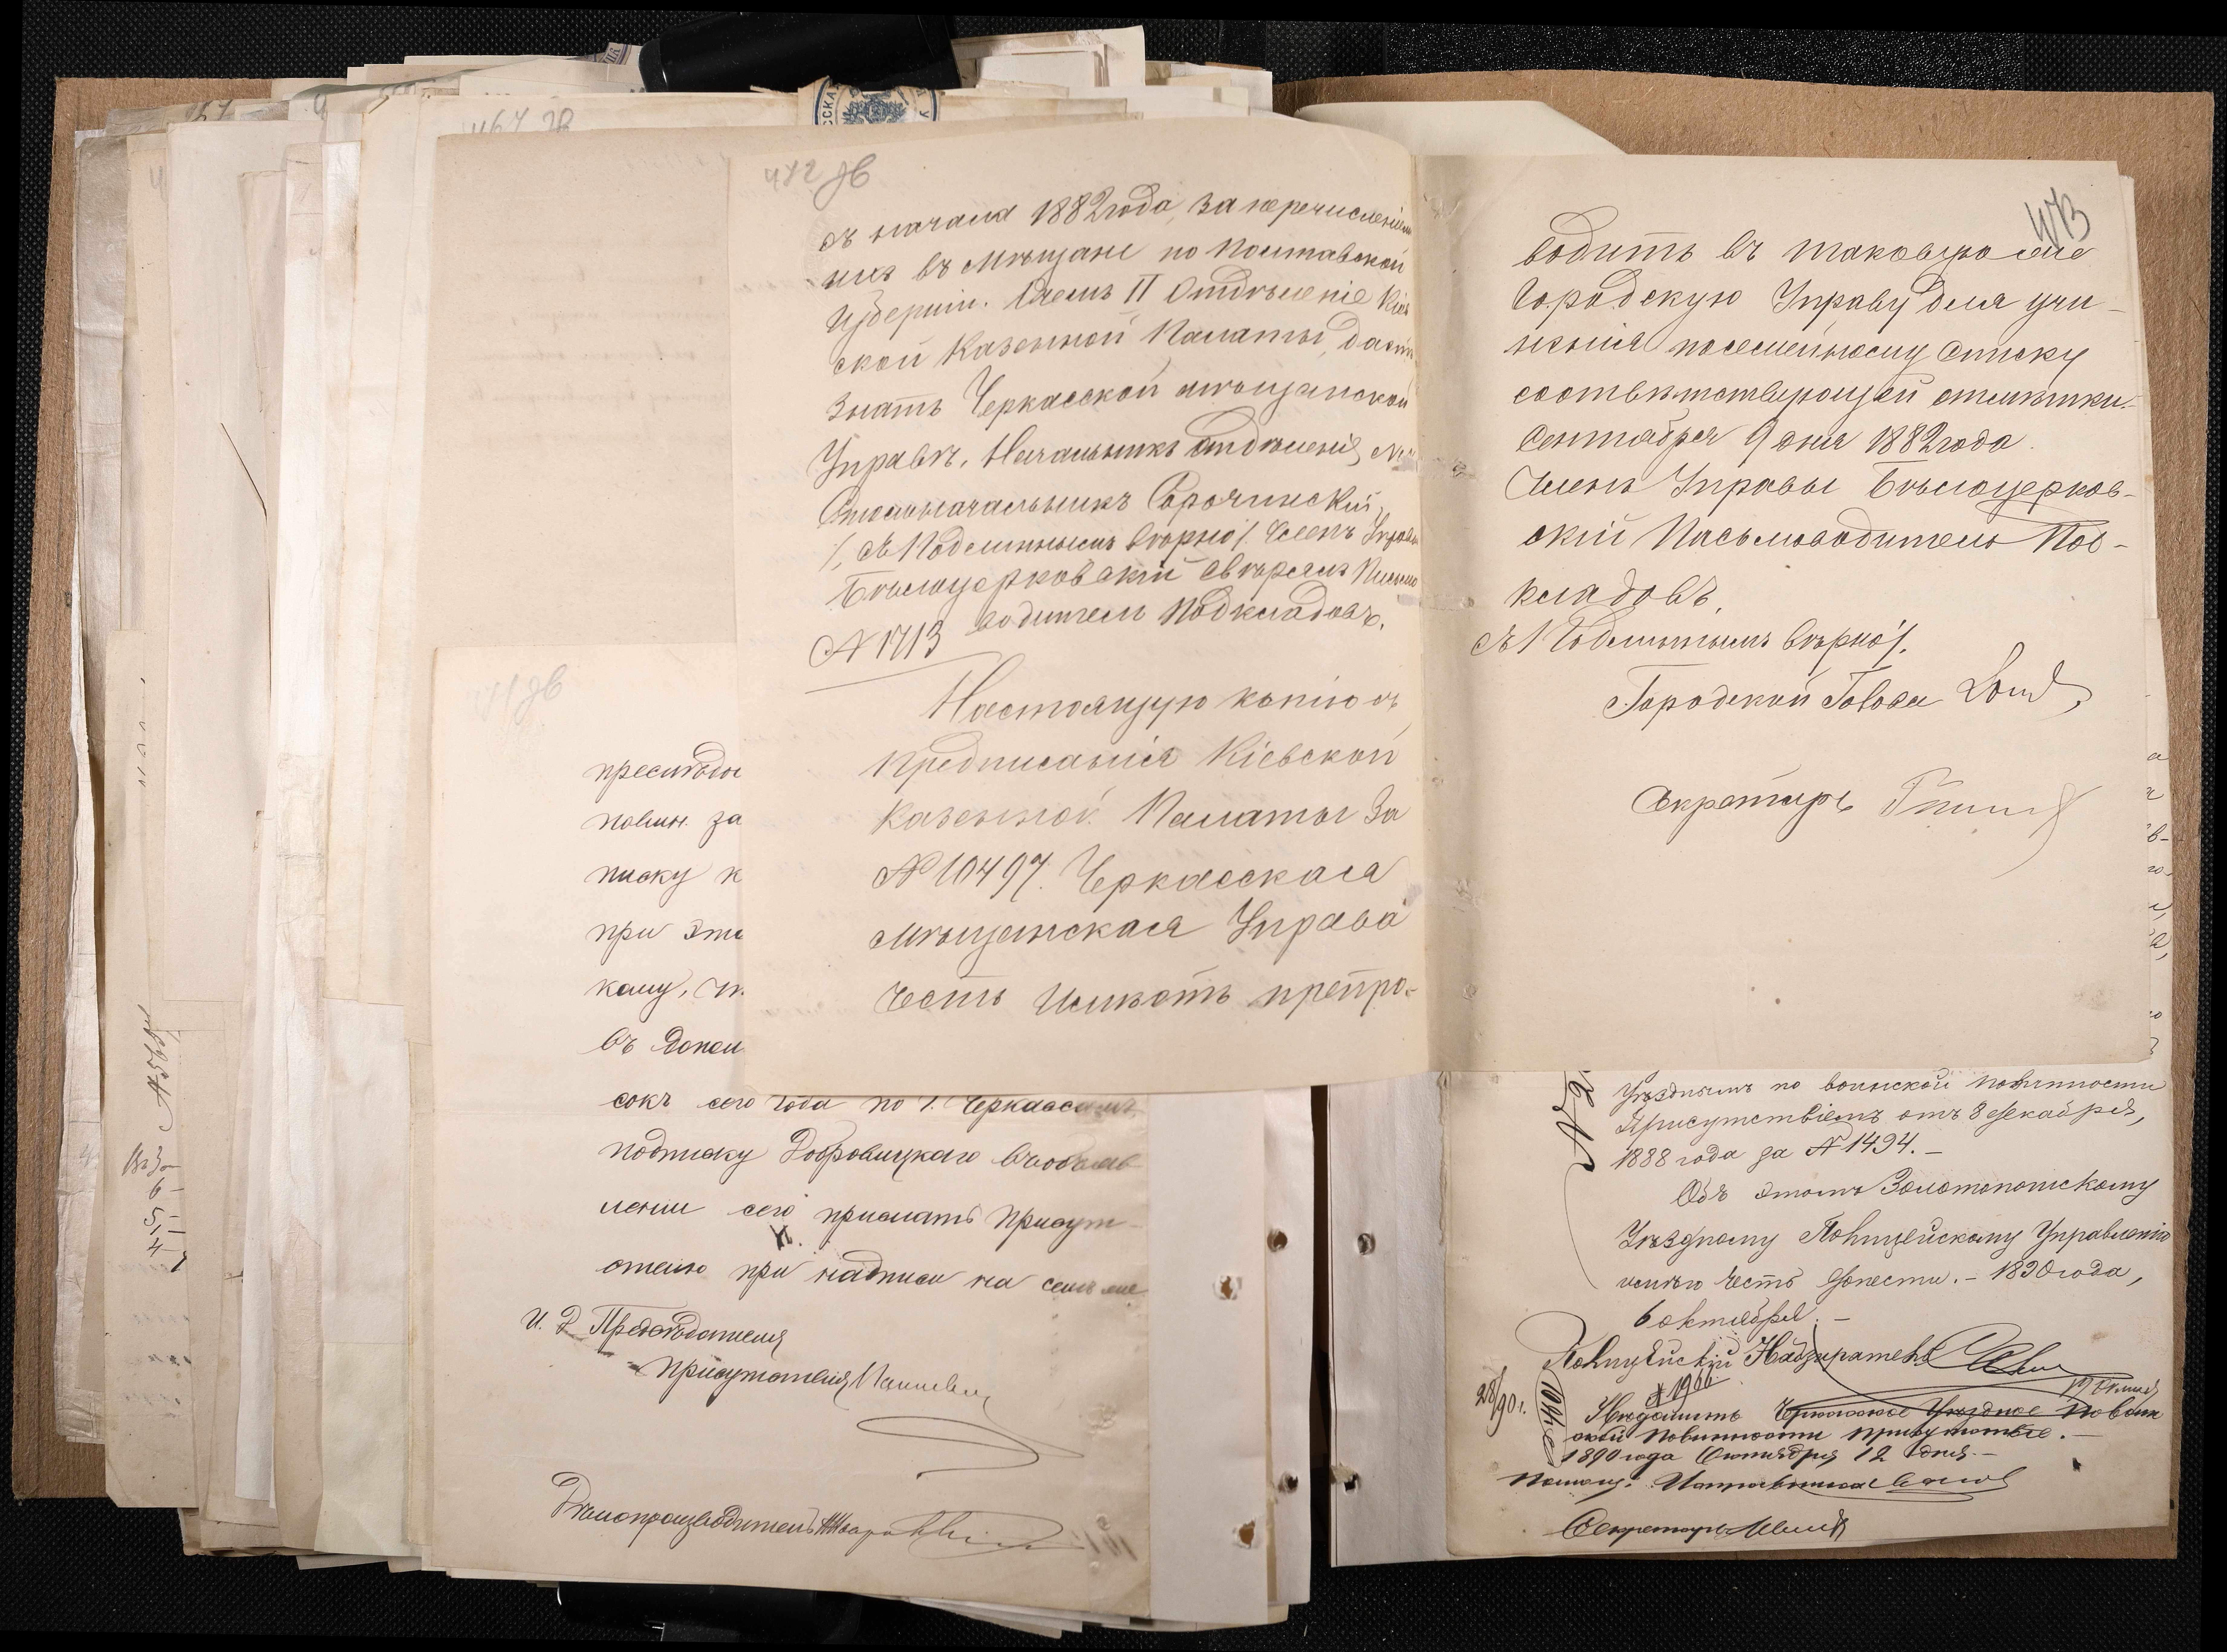 472 зв
съ начала 1882 года, за перечисленіемъ
ихъ въ мѣщане по Полтавской
Губерніи. О чемъ II Отдѣленіе Кіев
ской Казенной Палаты, даетъ
знать Черкасской мѣщанской
Управѣ, Начальникъ Отдѣленія
Столоначальникъ Сорочинскій,
/, съ Подлиннымъ вѣрно /. Членъ Управы
Бѣлоцерковскій свѣрялъ Письмо
водитель Подкладовъ.
№ 1713
Настоящую копію съ
предписанія Кіевской
Казенной Палаты за
№ 10497. Черкасская
Мѣщанская Управа
честь имѣетъ препро-
473
водить въ таковую же
Городскую Управу для учи-
ненія посемейному списку
соотвѣтствующей отмѣтки.
Сентября 9 дня 1882 года.
Членъ Управы Бѣлоцерков-
скій Письмоводитель Под-
кладовъ.
съ Подлиннымъ вѣрно /.
Городской Голова
Секретарь
467 зв
471 зв
повин. за
писку к
при эт
кому,
въ допол
сокъ сего года по г. Черкассамъ
подписку Добровицкаго въ объяв
леніи сего прислать Присут-
ствію при надписи на семъ же
И. Д. Предсѣдателя
Присутствія
Дѣлопроизводитель
Уѣзднымъ по воинской повинности
Присутствіемъ отъ 8 декабря,
1888 года за № 1494. –
Объ этомъ Золотоношскому
Уѣздному Полицейскому Управленію
имѣю честь донести. – 1890 года,
6 октября. –
Полицейскій Надзиратель
№ 1966
28/90 г.
Черкасское Уѣздное по воин
ской повинности присутствіе. –
1890 года Октября 12 дня. –
Помощ. Исправника
Секретарь